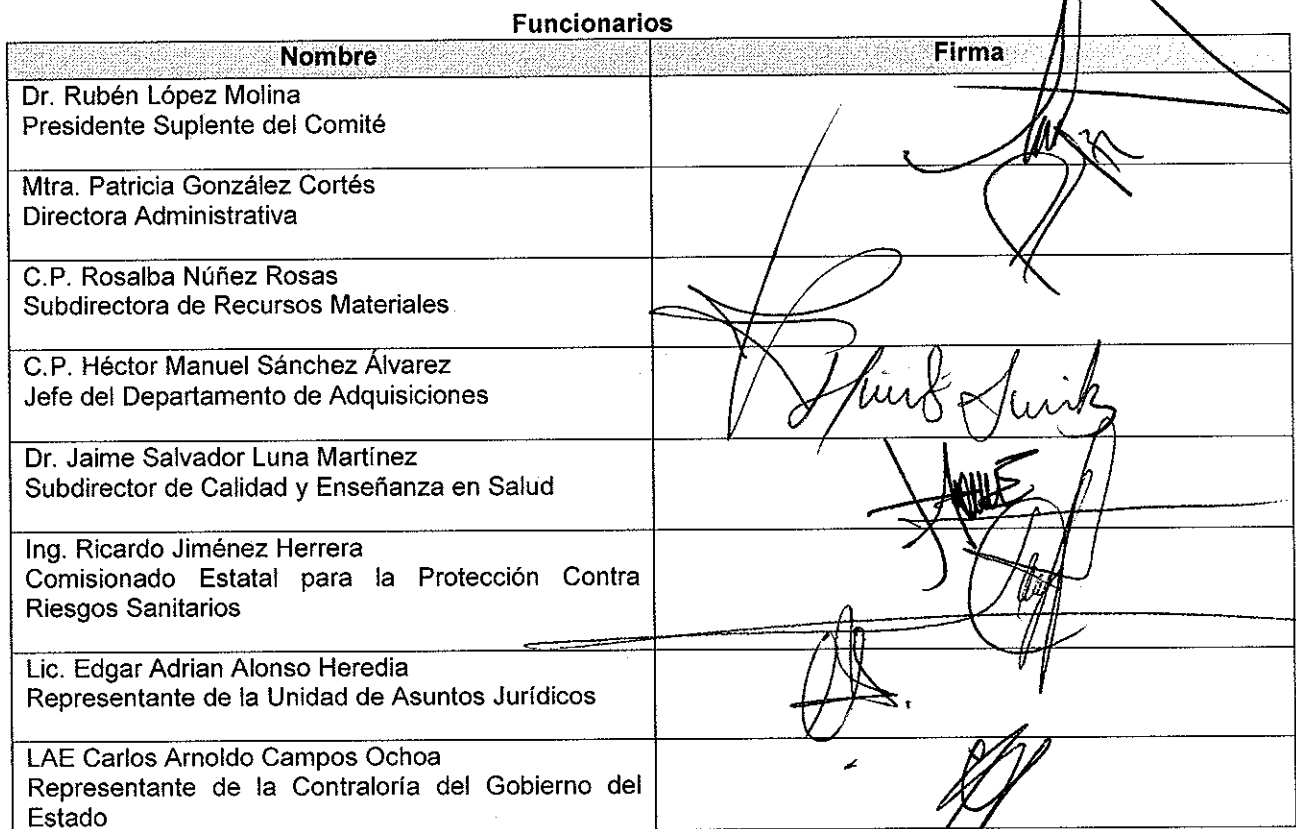 Funcionarios
Nombre
Firma
Dr. Rubén López Molina
Presidente Suplente del Comité
Mtra. Patricia González Cortés
Directora Administrativa
C.P. Rosalba Núñez Rosas
Subdirectora de Recursos Materiales
C.P. Héctor Manuel Sánchez Álvarez
Jefe del Departamento de Adquisiciones
Dr. Jaime Salvador Luna Martínez
Subdirector de Calidad y Enseñanza en Salud
Ing. Ricardo Jiménez Herrera
Comisionado Estatal para la Protección Contra
Riesgos Sanitarios
Lic. Edgar Adrian Alonso Heredia
Representante de la Unidad de Asuntos Jurídicos
LAE Carlos Arnoldo Campos Ochoa
Representante de la Contraloría del Gobierno del
Estado